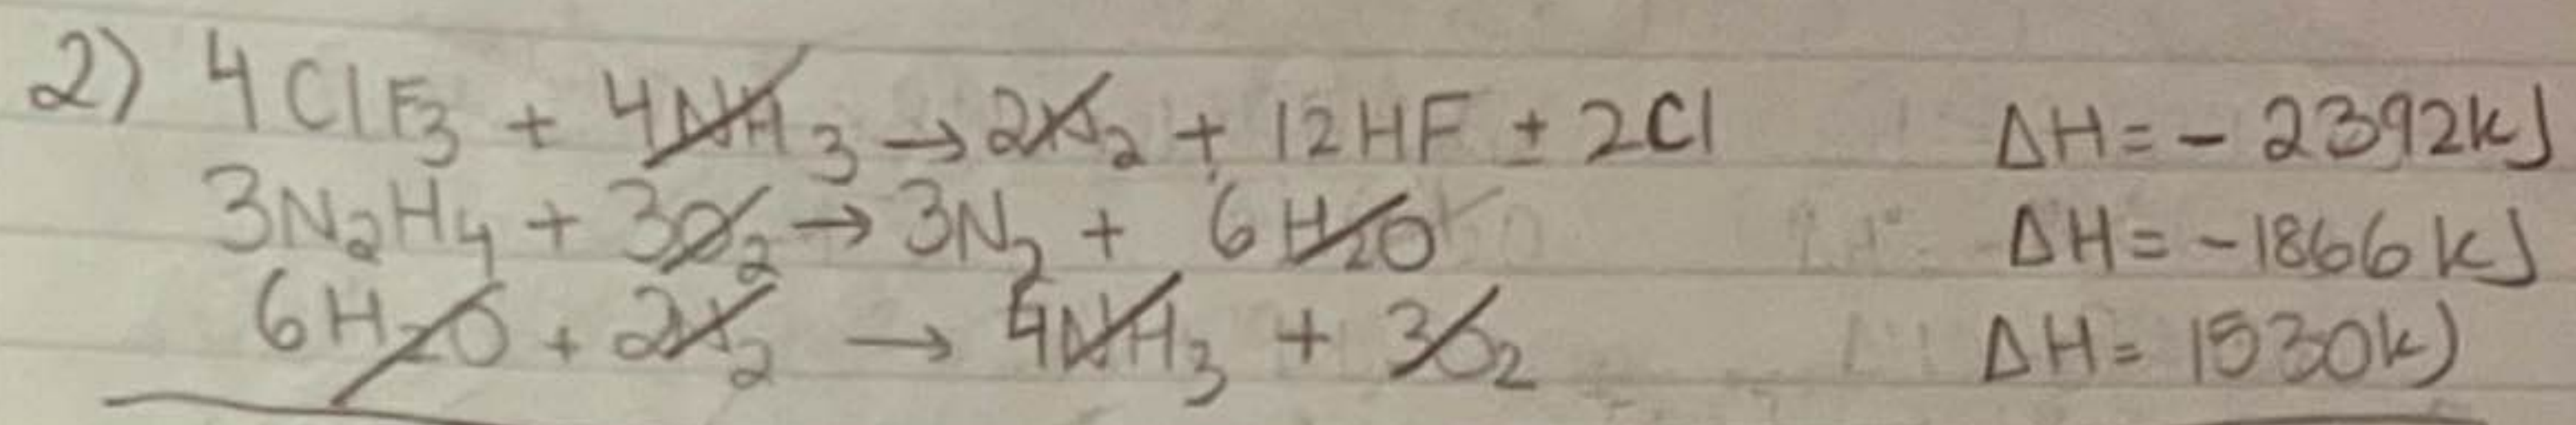 2) 4ClF₃ + 4NH₃ → 2N₂ + 12HF + 2Cl ΔH = - 2392kJ
3N₂H₄ + 3O₂ → 3N₂ + 6H₂O ΔH = -1866 kJ
6H₂O + 2N₂ → 4NH₃ + 3O₂ ΔH = 1530kJ